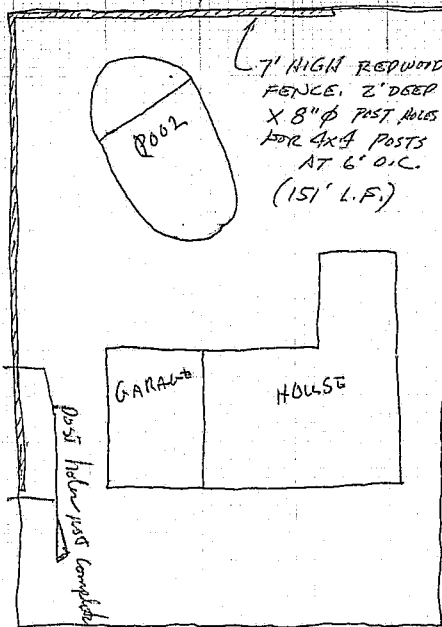 7' HIGH REDWOOD
FENCE. 2' DEEP
X 8"ϕ POST HOLES
FOR 4x4 POSTS
AT 6' O.C.
(151' L.F.)
POOL
GARAGE
HOUSE
Post holes not complete